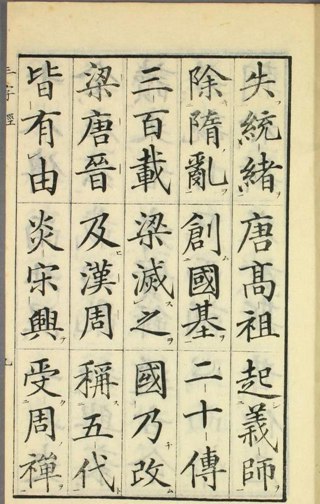 失統緒唐髙祖起義師
除隋亂創國基二十傳
三百載梁滅之國乃改
梁唐晉及漢周稱五代
皆有由炎宋興受周禪
三字經